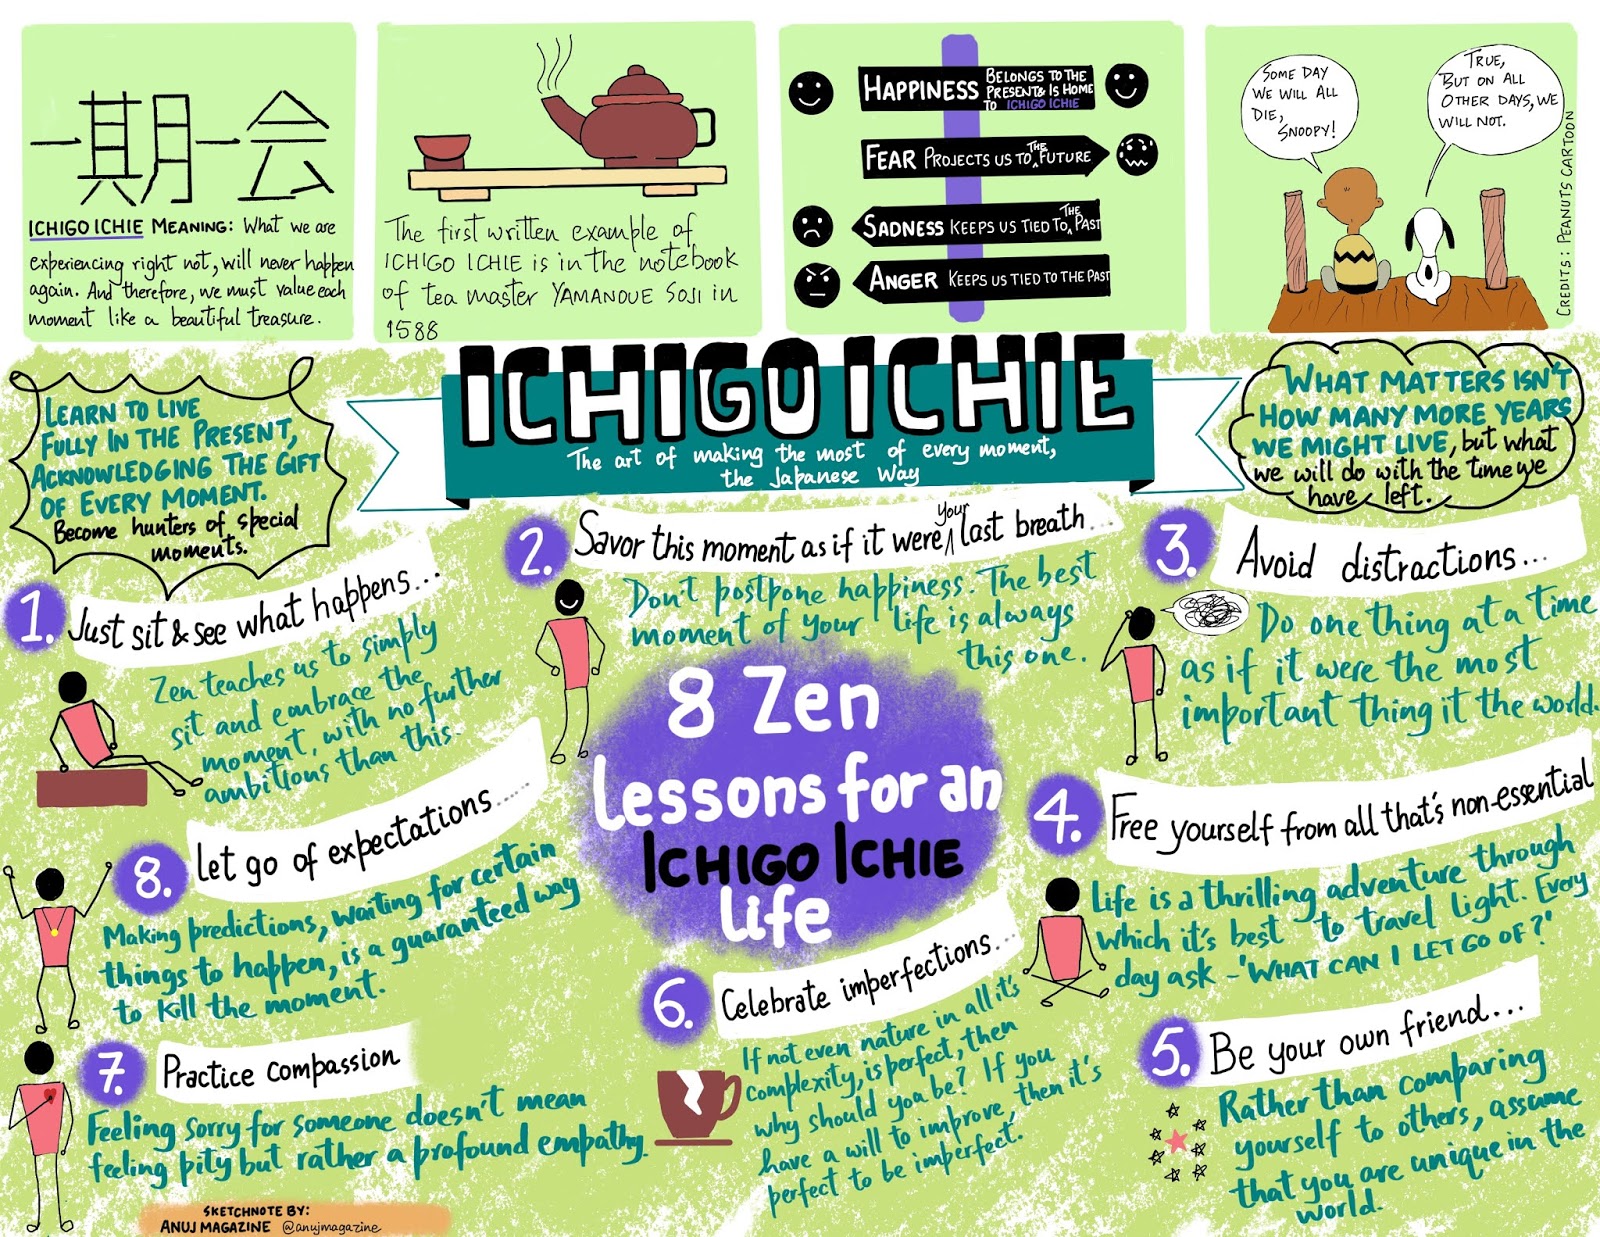 一期一会
ICHIGO ICHIE MEANING: What we are
experiencing right not, will never happen
again. And therefore, we must value each
moment like a beautiful treasure.
The first written example of
ICHIGO ICHIE is in the notebook
of tea master YAMANOUE SOJI in
1588
HAPPINESS BELONGS TO THE
PRESENT & IS HOME
TO ICHIGO ICHIE
FEAR PROJECTS US TO THE FUTURE
SADNESS KEEPS US TIED TO THE PAST
ANGER KEEPS US TIED TO THE PAST
SOME DAY
WE WILL ALL
DIE,
SNOOPY!
TRUE,
BUT ON ALL
OTHER DAYS, WE
WILL NOT.
CREDITS: PEANUTS CARTOON
ICHIGO ICHIE
The art of making the most of every moment,
the Japanese Way
LEARN TO LIVE
FULLY IN THE PRESENT,
ACKNOWLEDGING THE GIFT
OF EVERY MOMENT.
Become hunters of special
moments.
WHAT MATTERS ISN'T
HOW MANY MORE YEARS
WE MIGHT LIVE, but what
we will do with the time we
have left.
8 Zen
Lessons for an
ICHIGO ICHIE
Life
1. Just sit & see what happens...
Zen teaches us to simply
sit and embrace the
moment, with no further
ambitions than this.
2. Savor this moment as if it were your last breath...
Don't postpone happiness. The best
moment of your life is always
this one.
3. Avoid distractions...
Do one thing at a time
as if it were the most
important thing it the world.
4. Free yourself from all that's non-essential
Life is a thrilling adventure through
which it's best to travel light. Every
day ask - 'WHAT CAN I LET GO OF?'
5. Be your own friend...
Rather than comparing
yourself to others, assume
that you are unique in the
world.
6. Celebrate imperfections...
If not even nature in all it's
complexity, is perfect, then
why should you be? If you
have a will to improve, then it's
perfect to be imperfect.
7. Practice compassion
Feeling sorry for someone doesn't mean
feeling pity but rather a profound empathy.
8. Let go of expectations......
Making predictions, waiting for certain
things to happen, is a guaranteed way
to kill the moment.
SKETCHNOTE BY:
ANUJ MAGAZINE @anujmagazine